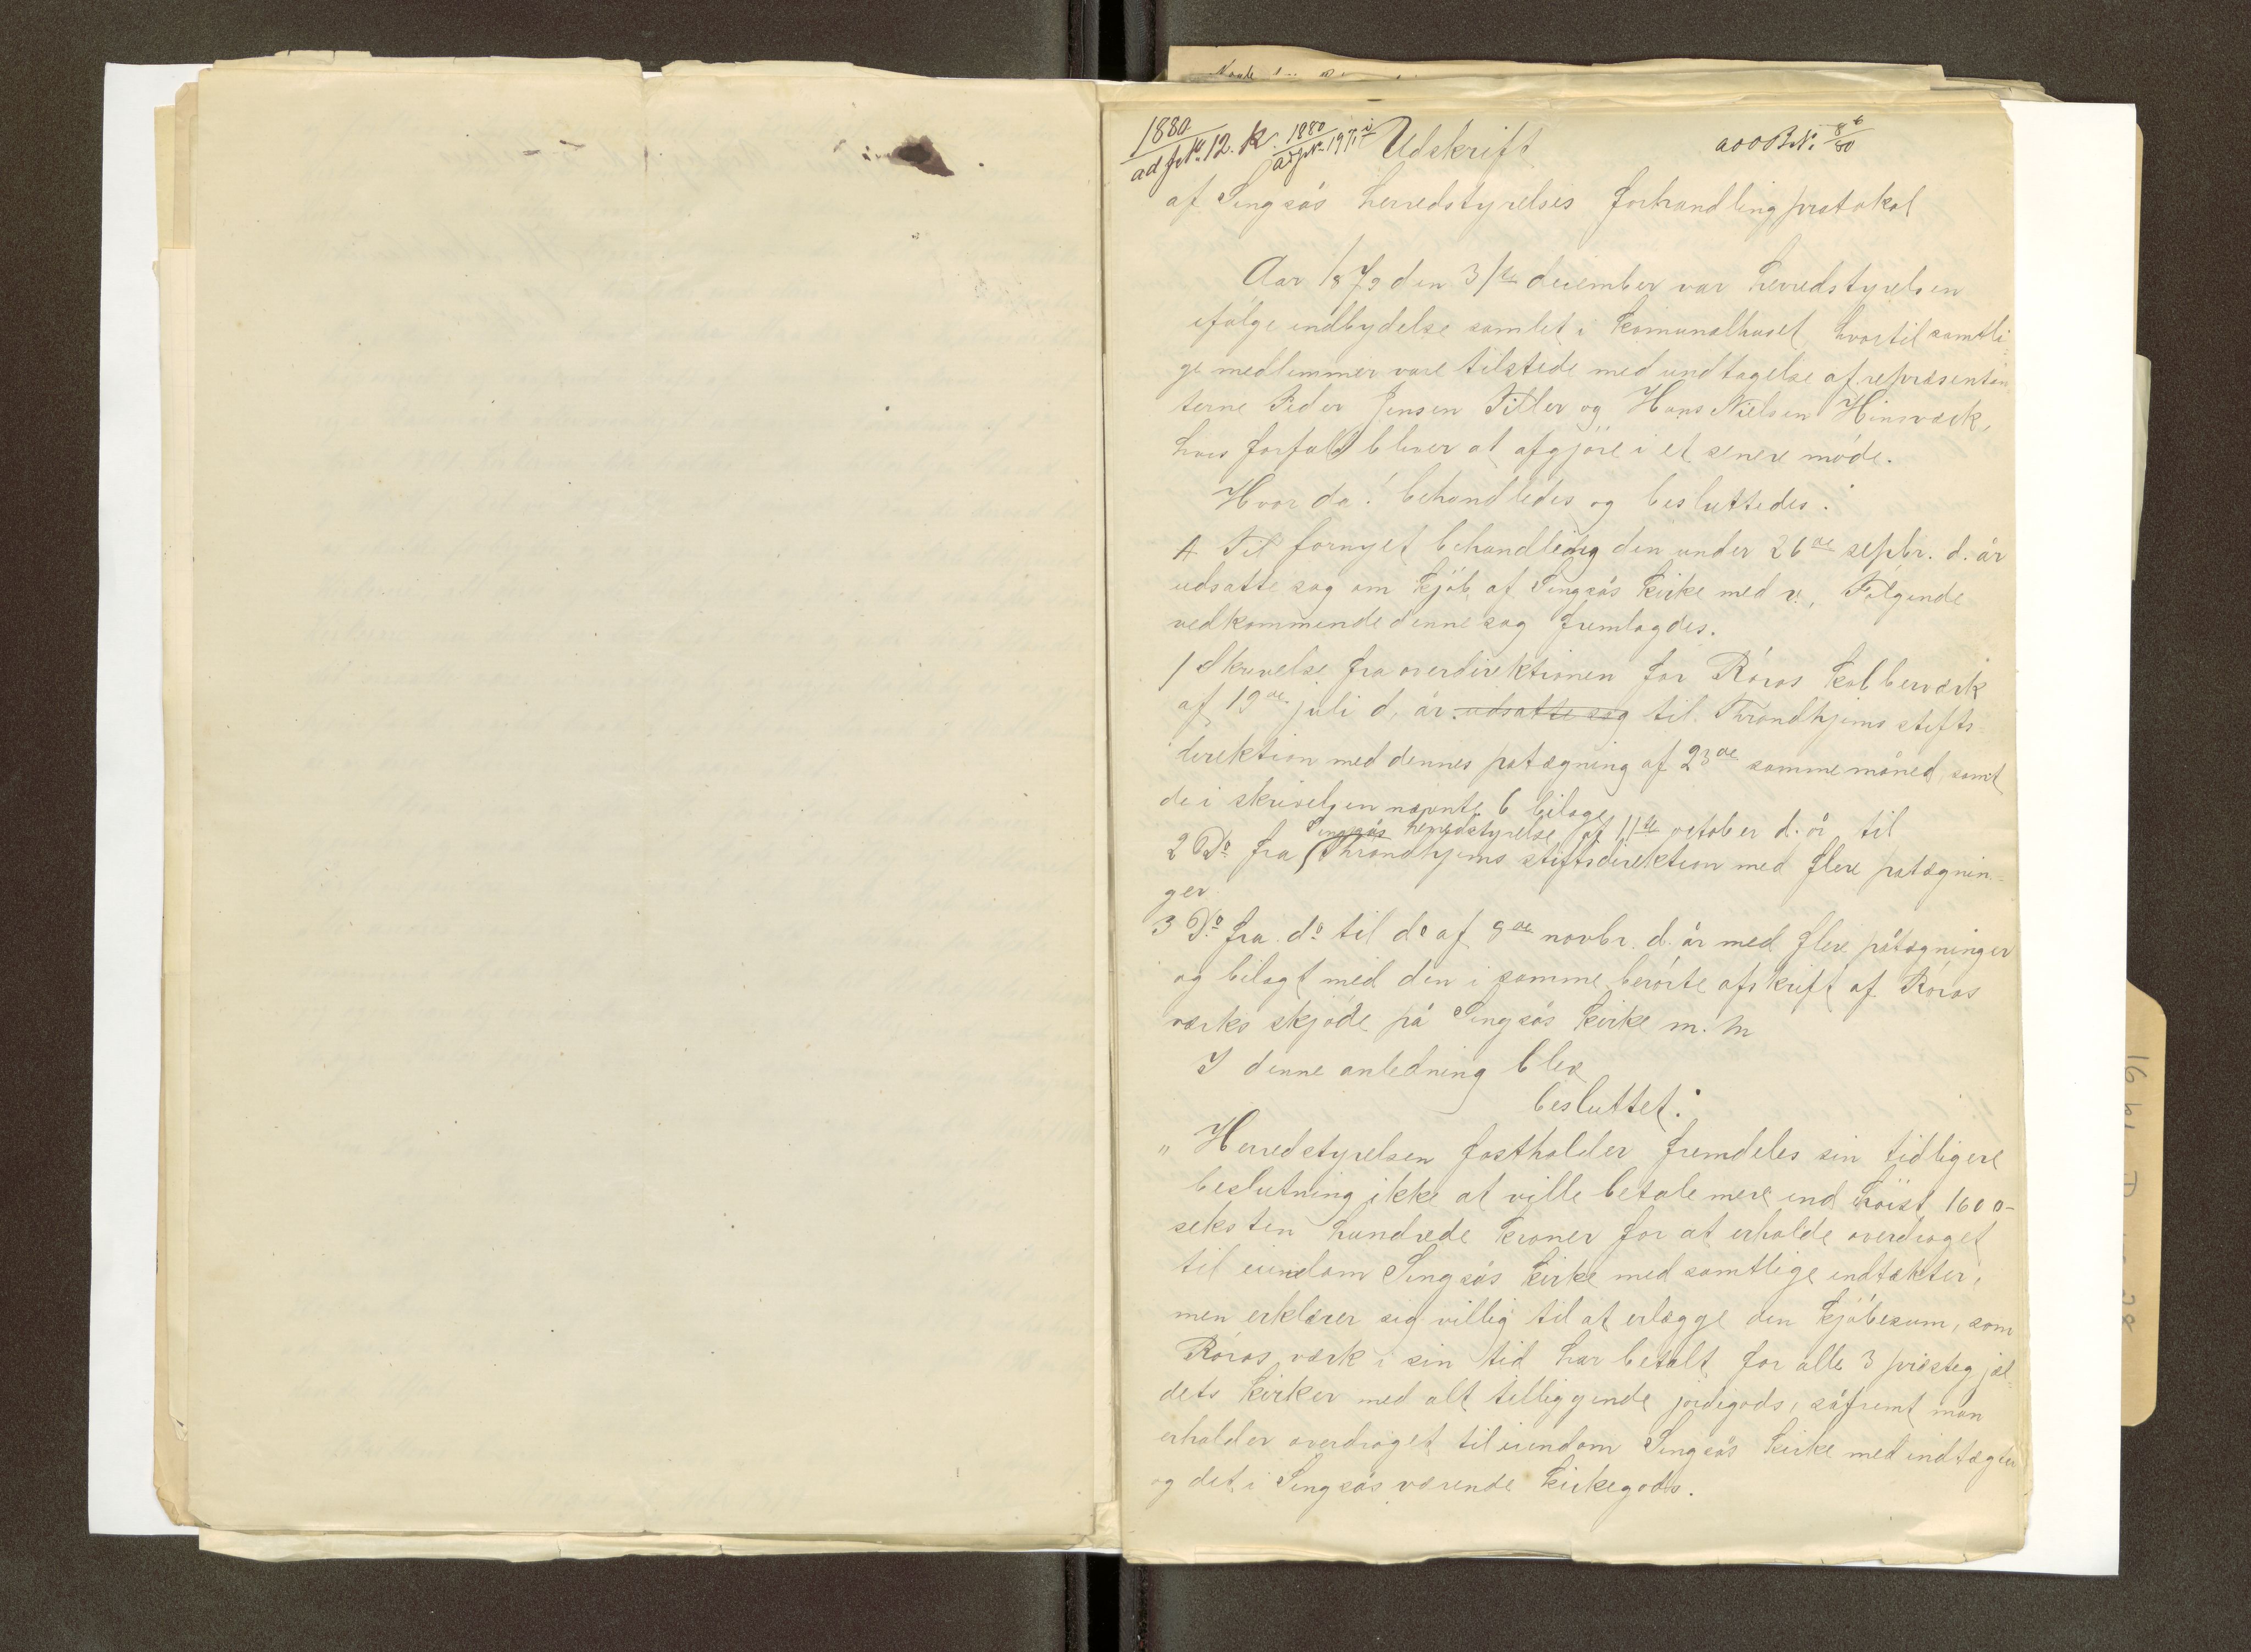 1880
ad jr No. 12. K. 1880
ad jr No. 1971
Udskrift
af Singsås herredstyrelses forhandlingprotokol
Aar 1879 den 31te december var herredstyrelsen
ifølge indbydelse samlet i komunalhuset, hvortil samtli-
ge medlemmer vare tilstede med undtagelse af repræsentan
terne Peder Jensen Filler og Hans Nielsen Hinsværk,
hvis forfald bliver at afgjöre i et senere möde.
Hvor da! behandledes og besluttedes:
A Til fornyet behandleding den under 26de sepbr. d. år
udsatte sag om kjöb af Singsås kirke med v., Følgende
vedkommende denne sag fremlagdes.
1 Skrivelse fra overdirektionen for Röros kobberværk
af 19de juli d. år. udsatte sag til Throndhjems stifts-
direktion med dennes patægning af 23de samme måned, samt
de i skrivelsen nævnte 6 bilage
Singsås herredstyrelse af 11te october d. år til
2 Do fra Throndhjems stiftsdirektion med flere patægnin-
ger.
3 Do fra do til do af 8de novbr. d. år med flere påtægninger
og bilagt med den i samme berörte afskrift af Röros
værks skjöde på Singsås kirke m. m
I denne anledning blev
besluttet:
„Herredstyrelsen fastholder fremdeles sin tidligere
beslutning ikke at ville betale mere end höist 1600-
seksten hundrede kroner for at erholde overdraget
til eiendom Singsås kirke med samtlige indtækter,
men erklærer sig villig til at erlægge den kjöbesum, som
Röros værk i sin tid har betalt for alle 3 præstegjæl-
dets kirker med alt tilliggende jordegods, såfremt man
erholder overdraget til eiendom Singsås kirke med indtægter
og det i Singsås værende kirkegods.